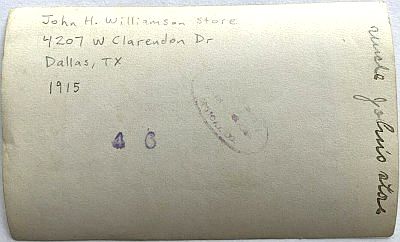 John H. Williamson Store
4207 W Clarendon Dr
Dallas, TX
1915
4 6
uncle John's store